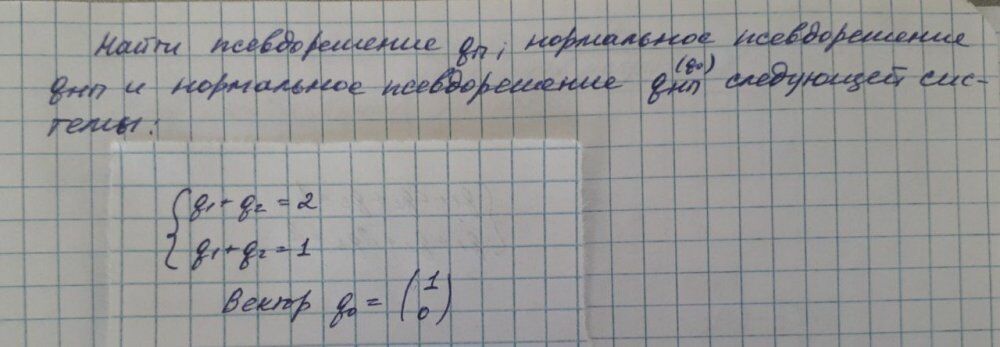 Найти псевдорешение qп, нормальное псевдорешение
qнп и нормальное псевдорешение qнп^(q₀) следующей сис-
темы:
{ q₁ + q₂ = 2
{ q₁ + q₂ = 1
Вектор q₀ = (1 0)